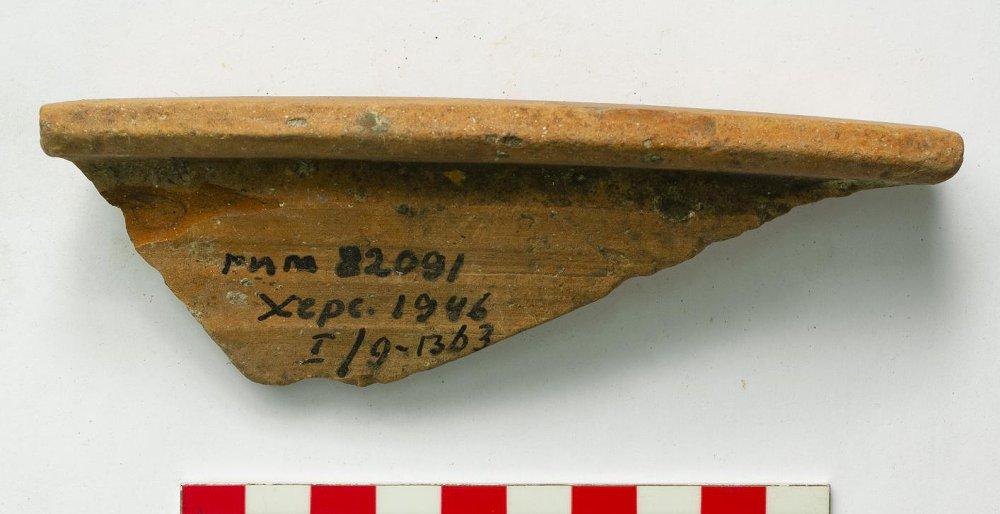 гим 82091
Херс. 1946
I/9-1363